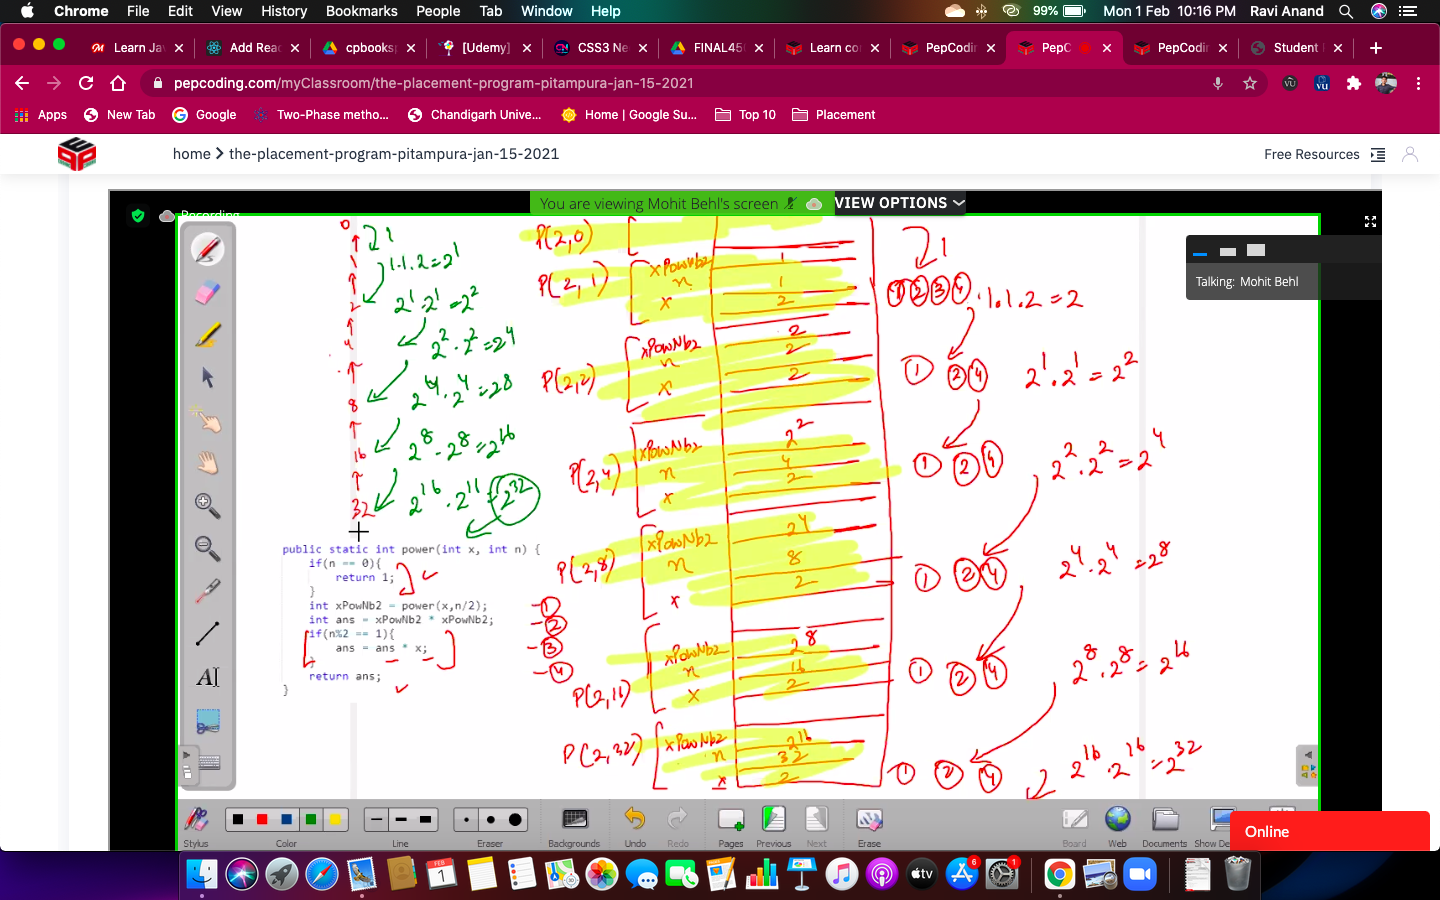 Chrome File Edit View History Bookmarks People Tab Window Help 99% Mon 1 Feb 10:16 PM Ravi Anand
Learn Jav Add Reac cpbooks [Udemy] CSS3 Ne FINAL45 Learn co PepCodin PepC PepCodin Student
pepcoding.com/myClassroom/the-placement-program-pitampura-jan-15-2021
Apps New Tab Google Two-Phase metho... Chandigarh Unive... Home | Google Su... Top 10 Placement
home > the-placement-program-pitampura-jan-15-2021 Free Resources
Recording You are viewing Mohit Behl's screen VIEW OPTIONS
Talking: Mohit Behl
0
1
2
4
8
16
32
1
1.1.2=2¹
2¹.2¹=2²
2².2²=2⁴
2⁴.2⁴=2⁸
2⁸.2⁸=2¹⁶
2¹⁶.2¹⁶ 2³²
public static int power(int x, int n) {
if(n == 0){
return 1;
}
int xPowNb2 = power(x,n/2); -①
int ans = xPowNb2 * xPowNb2; -②
if(n%2 == 1){ -③
ans = ans * x;
} -④
return ans;
}
P(2,0)
P(2,1) xPowNb2 1
n 1
x 2
P(2,2) xPowNb2 2
n 2
x 2
P(2,4) xPowNb2 2²
n 4
x 2
P(2,8) xPowNb2 2⁴
n 8
x 2
P(2,16) xPowNb2 2⁸
n 16
x 2
P(2,32) xPowNb2 2¹⁶
n 32
x 2
1
① ② ③ ④ .1.1.2=2
① ② ④ 2¹.2¹=2²
① ② ④ 2².2²=2⁴
① ② ④ 2⁴.2⁴=2⁸
① ② ④ 2⁸.2⁸=2¹⁶
① ② ④ 2¹⁶.2¹⁶=2³²
Stylus Color Line Eraser Backgrounds Undo Redo Pages Previous Next Erase Board Web Documents Show De
Online
FEB
1
tv
6
1